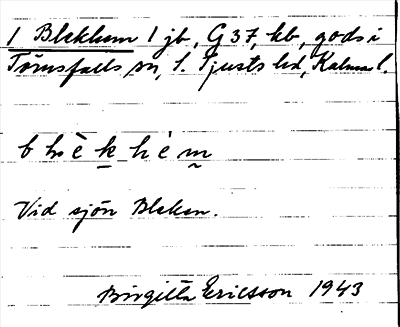 1 Blekhem 1 jb, G 37, kb, gods i
Törnsfalls sn, S. Tjusts hd, Kalmar l.
Vid sjön Bleken.
Birgitta Ericsson 1943